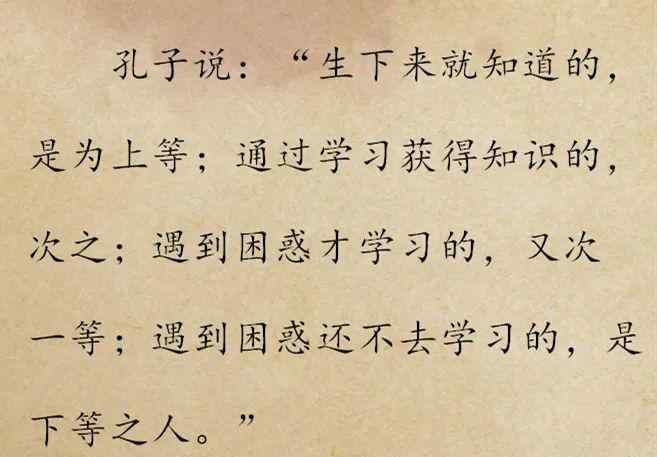 孔子说：“生下来就知道的，
是为上等；通过学习获得知识的，
次之；遇到困惑才学习的，又次
一等；遇到困惑还不去学习的，是
下等之人。”